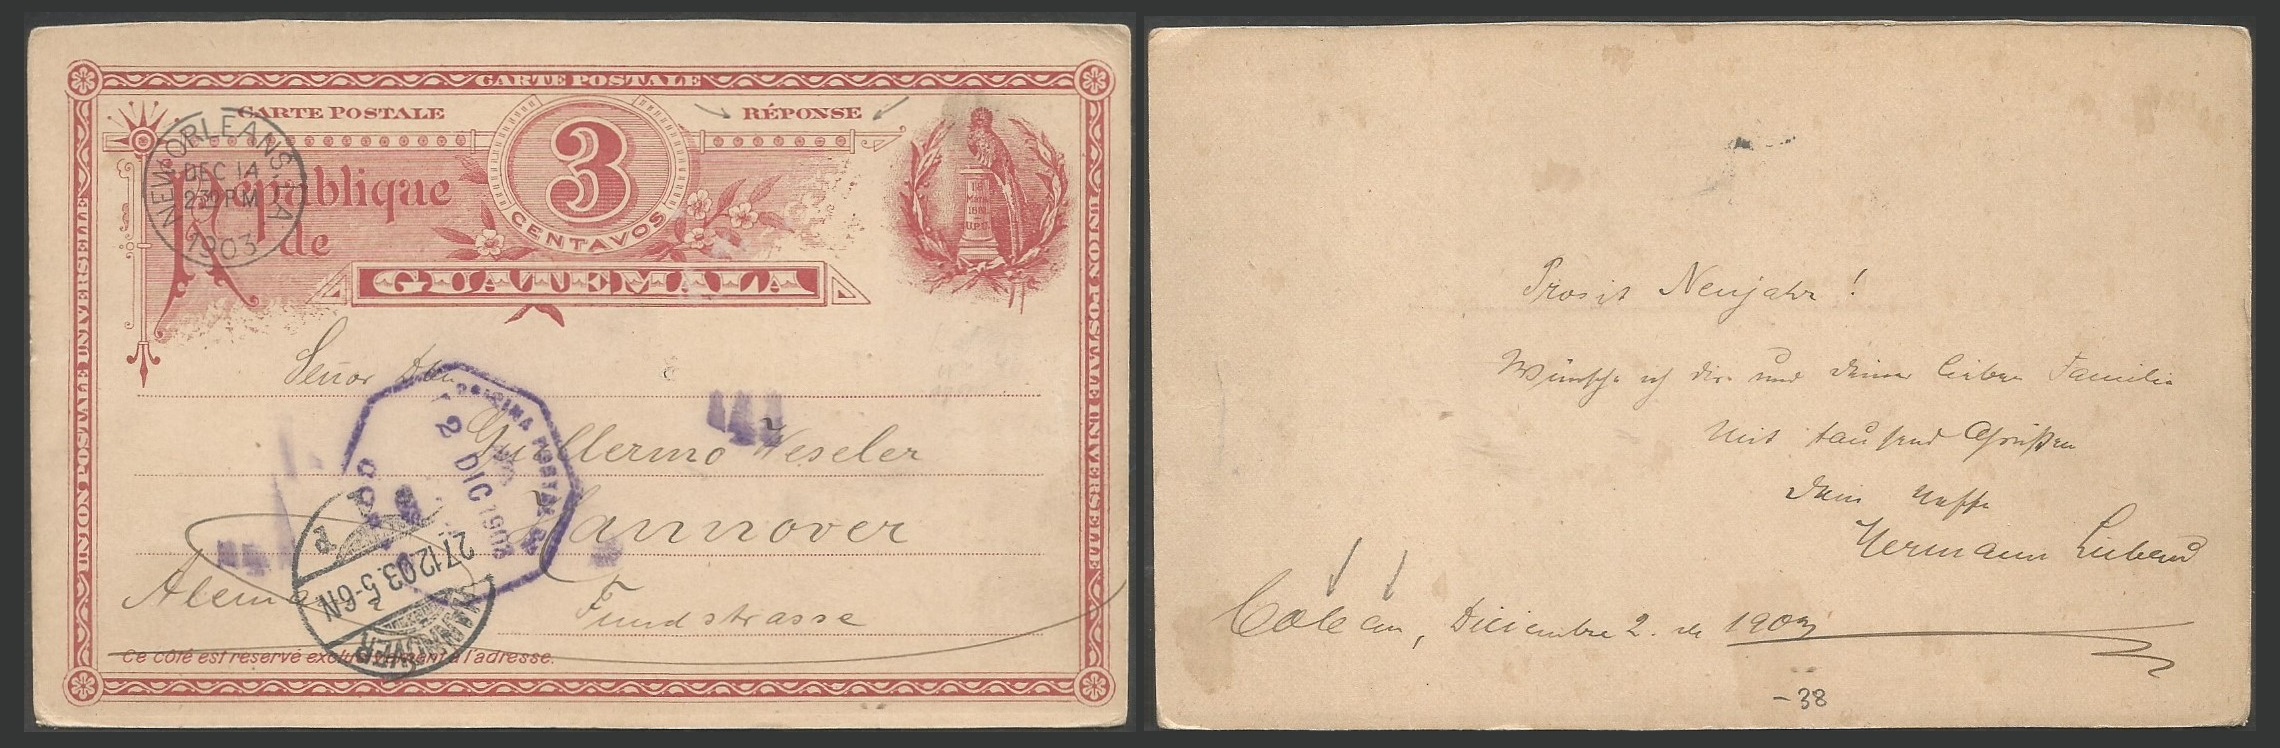 CARTE POSTALE
CARTE POSTALE
RÉPONSE
3
CENTAVOS
République
de
GUATEMALA
18
Marzo
1881
U.P.U.
UNION POSTALE UNIVERSELLE
UNION POSTALE UNIVERSELLE
NEW ORLEANS, LA
DEC 14
2 30 PM
1903
Señor Don
Guillermo Weseler
Hannover
Alemania
Fundstrasse
POSTAL
2 DIC 1903
HANNOVER
27.12.03. 5-6N
Ce côté est reservé exclusivement à l'adresse.
Prosit Neujahr!
Wünsche ich dir und deiner lieben Familie
Mit tausend Grüßen
Dein Neffe
Hermann
Coban, Diciembre 2. de 1903
-38